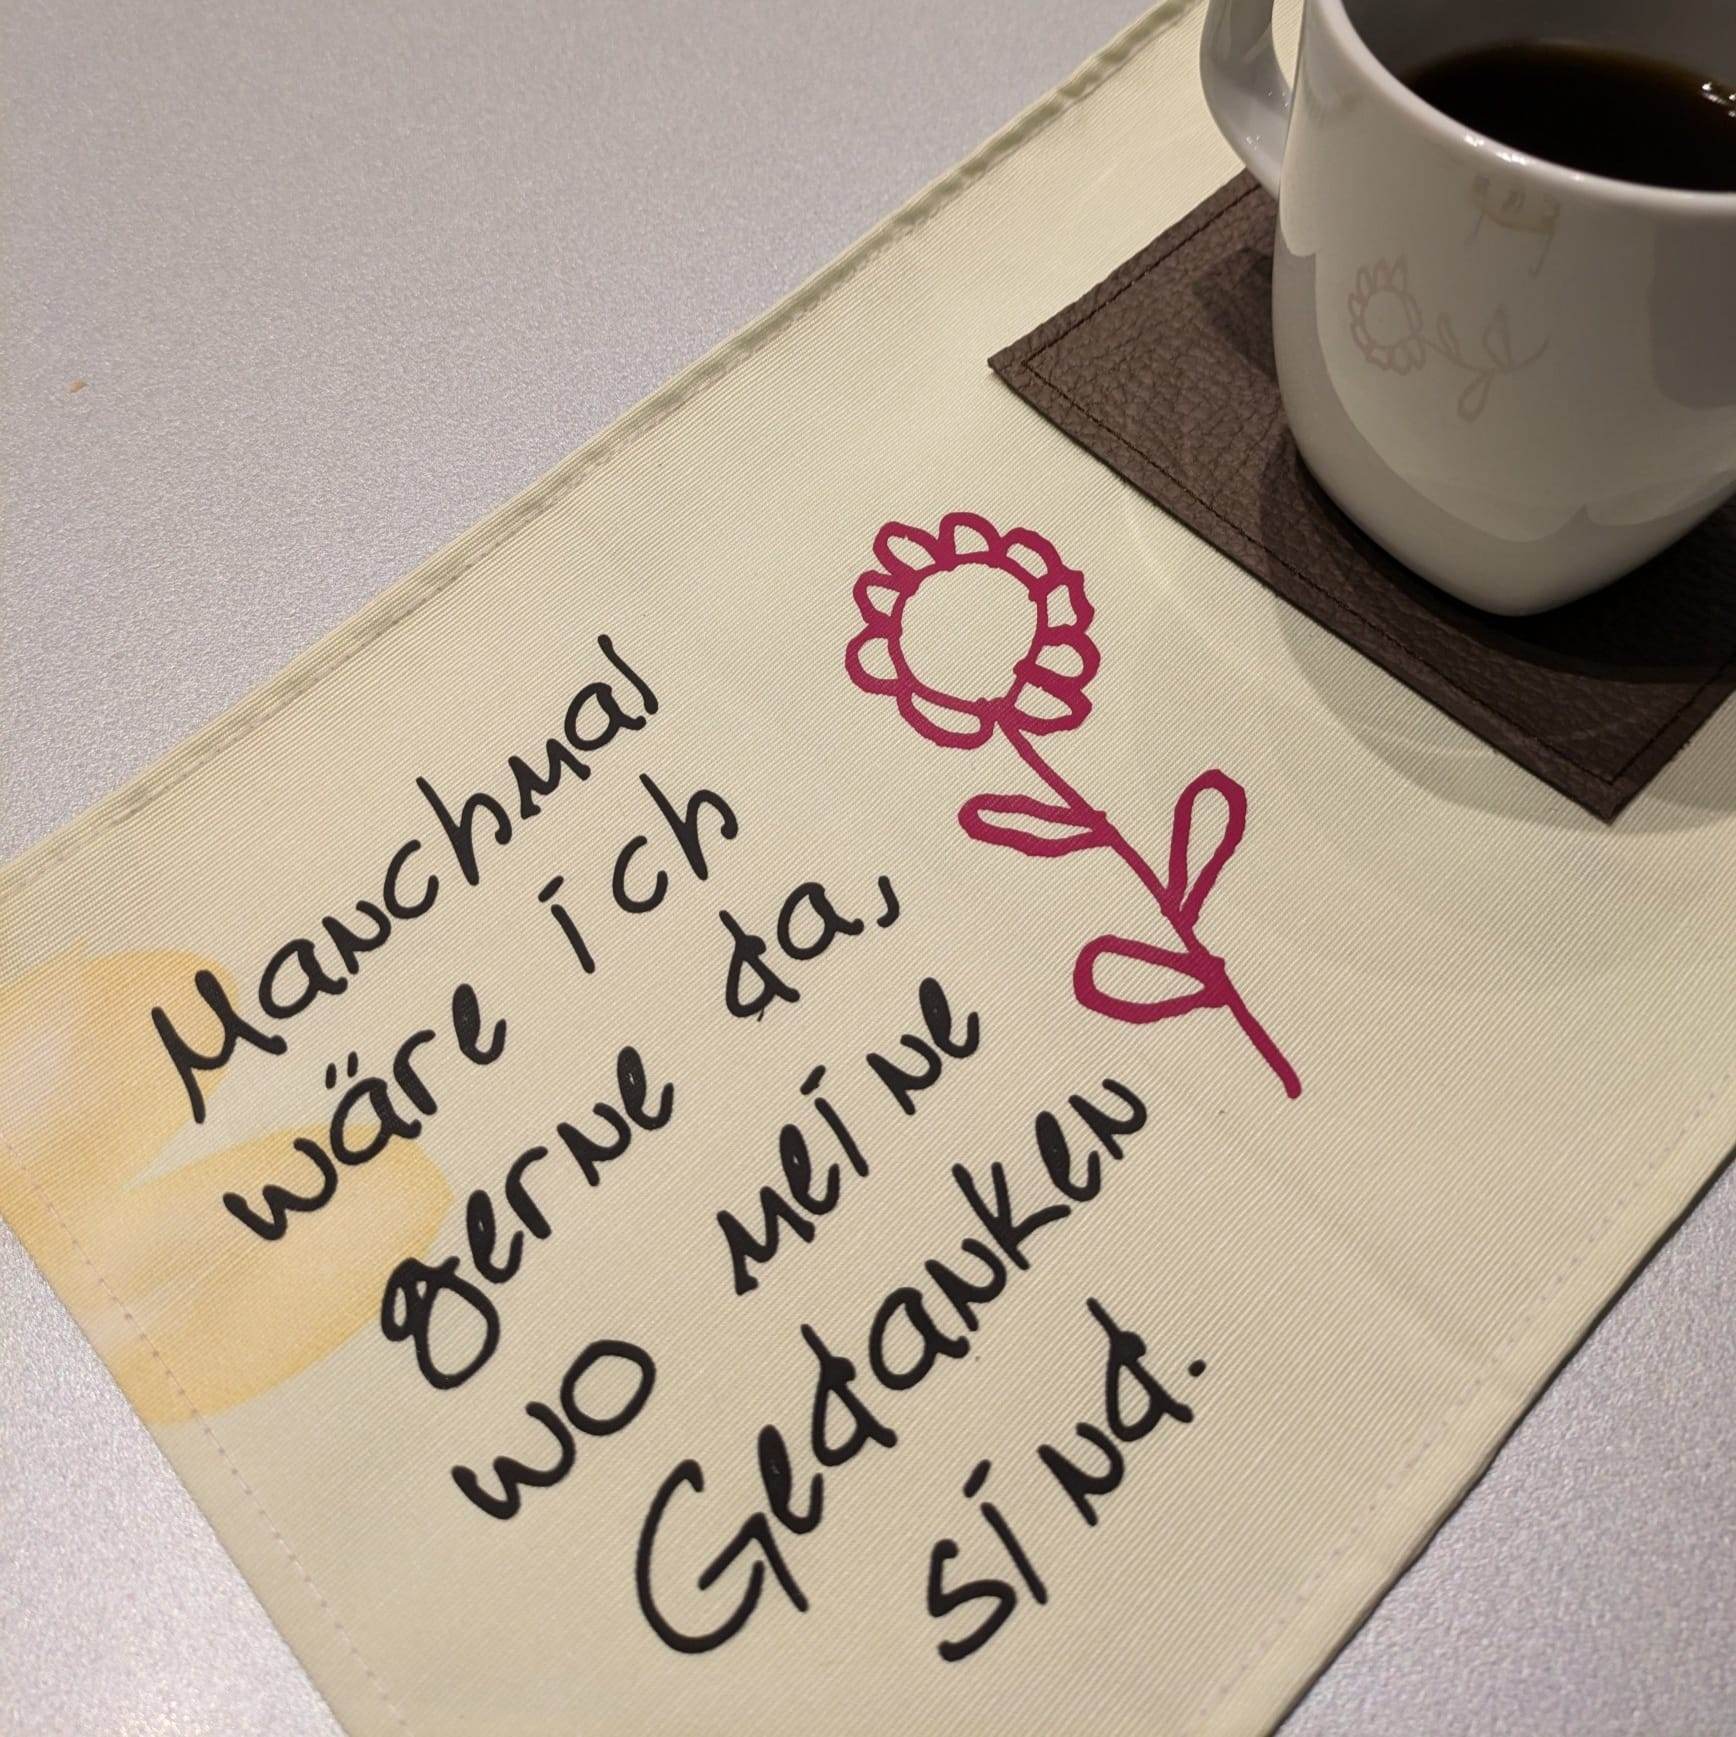 Manchmal
wäre ich
gerne da,
wo meine
Gedanken
sind.